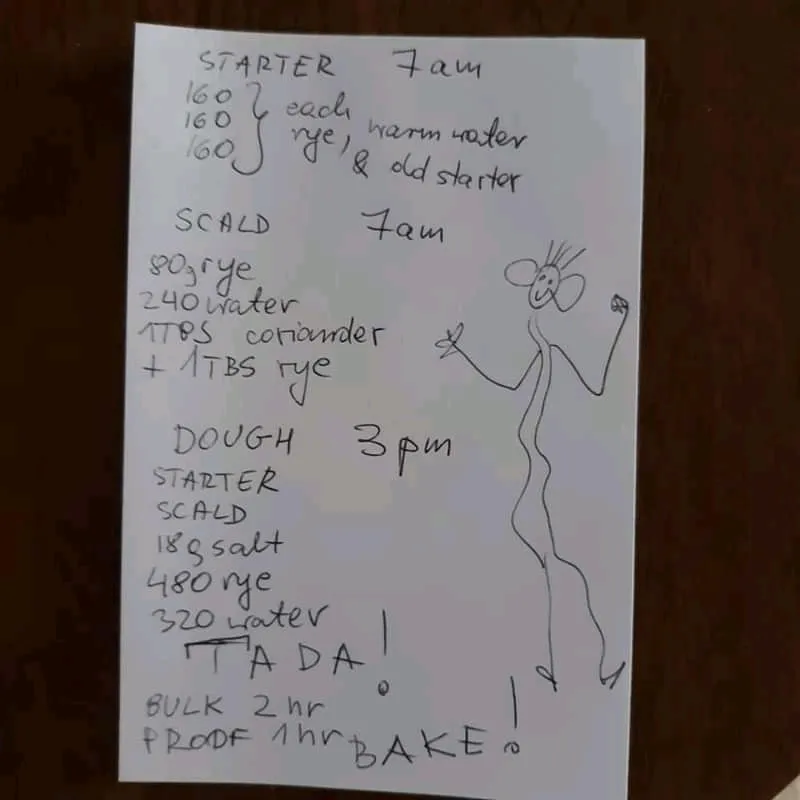 STARTER 7am
160 } each
160 } rye, warm water
160 } & old starter
SCALD 7am
80g rye
240 water
1TBS coriander
+ 1TBS rye
DOUGH 3pm
STARTER
SCALD
18g salt
480 rye
320 water
TADA!
BULK 2 hr
PROOF 1 hr BAKE!